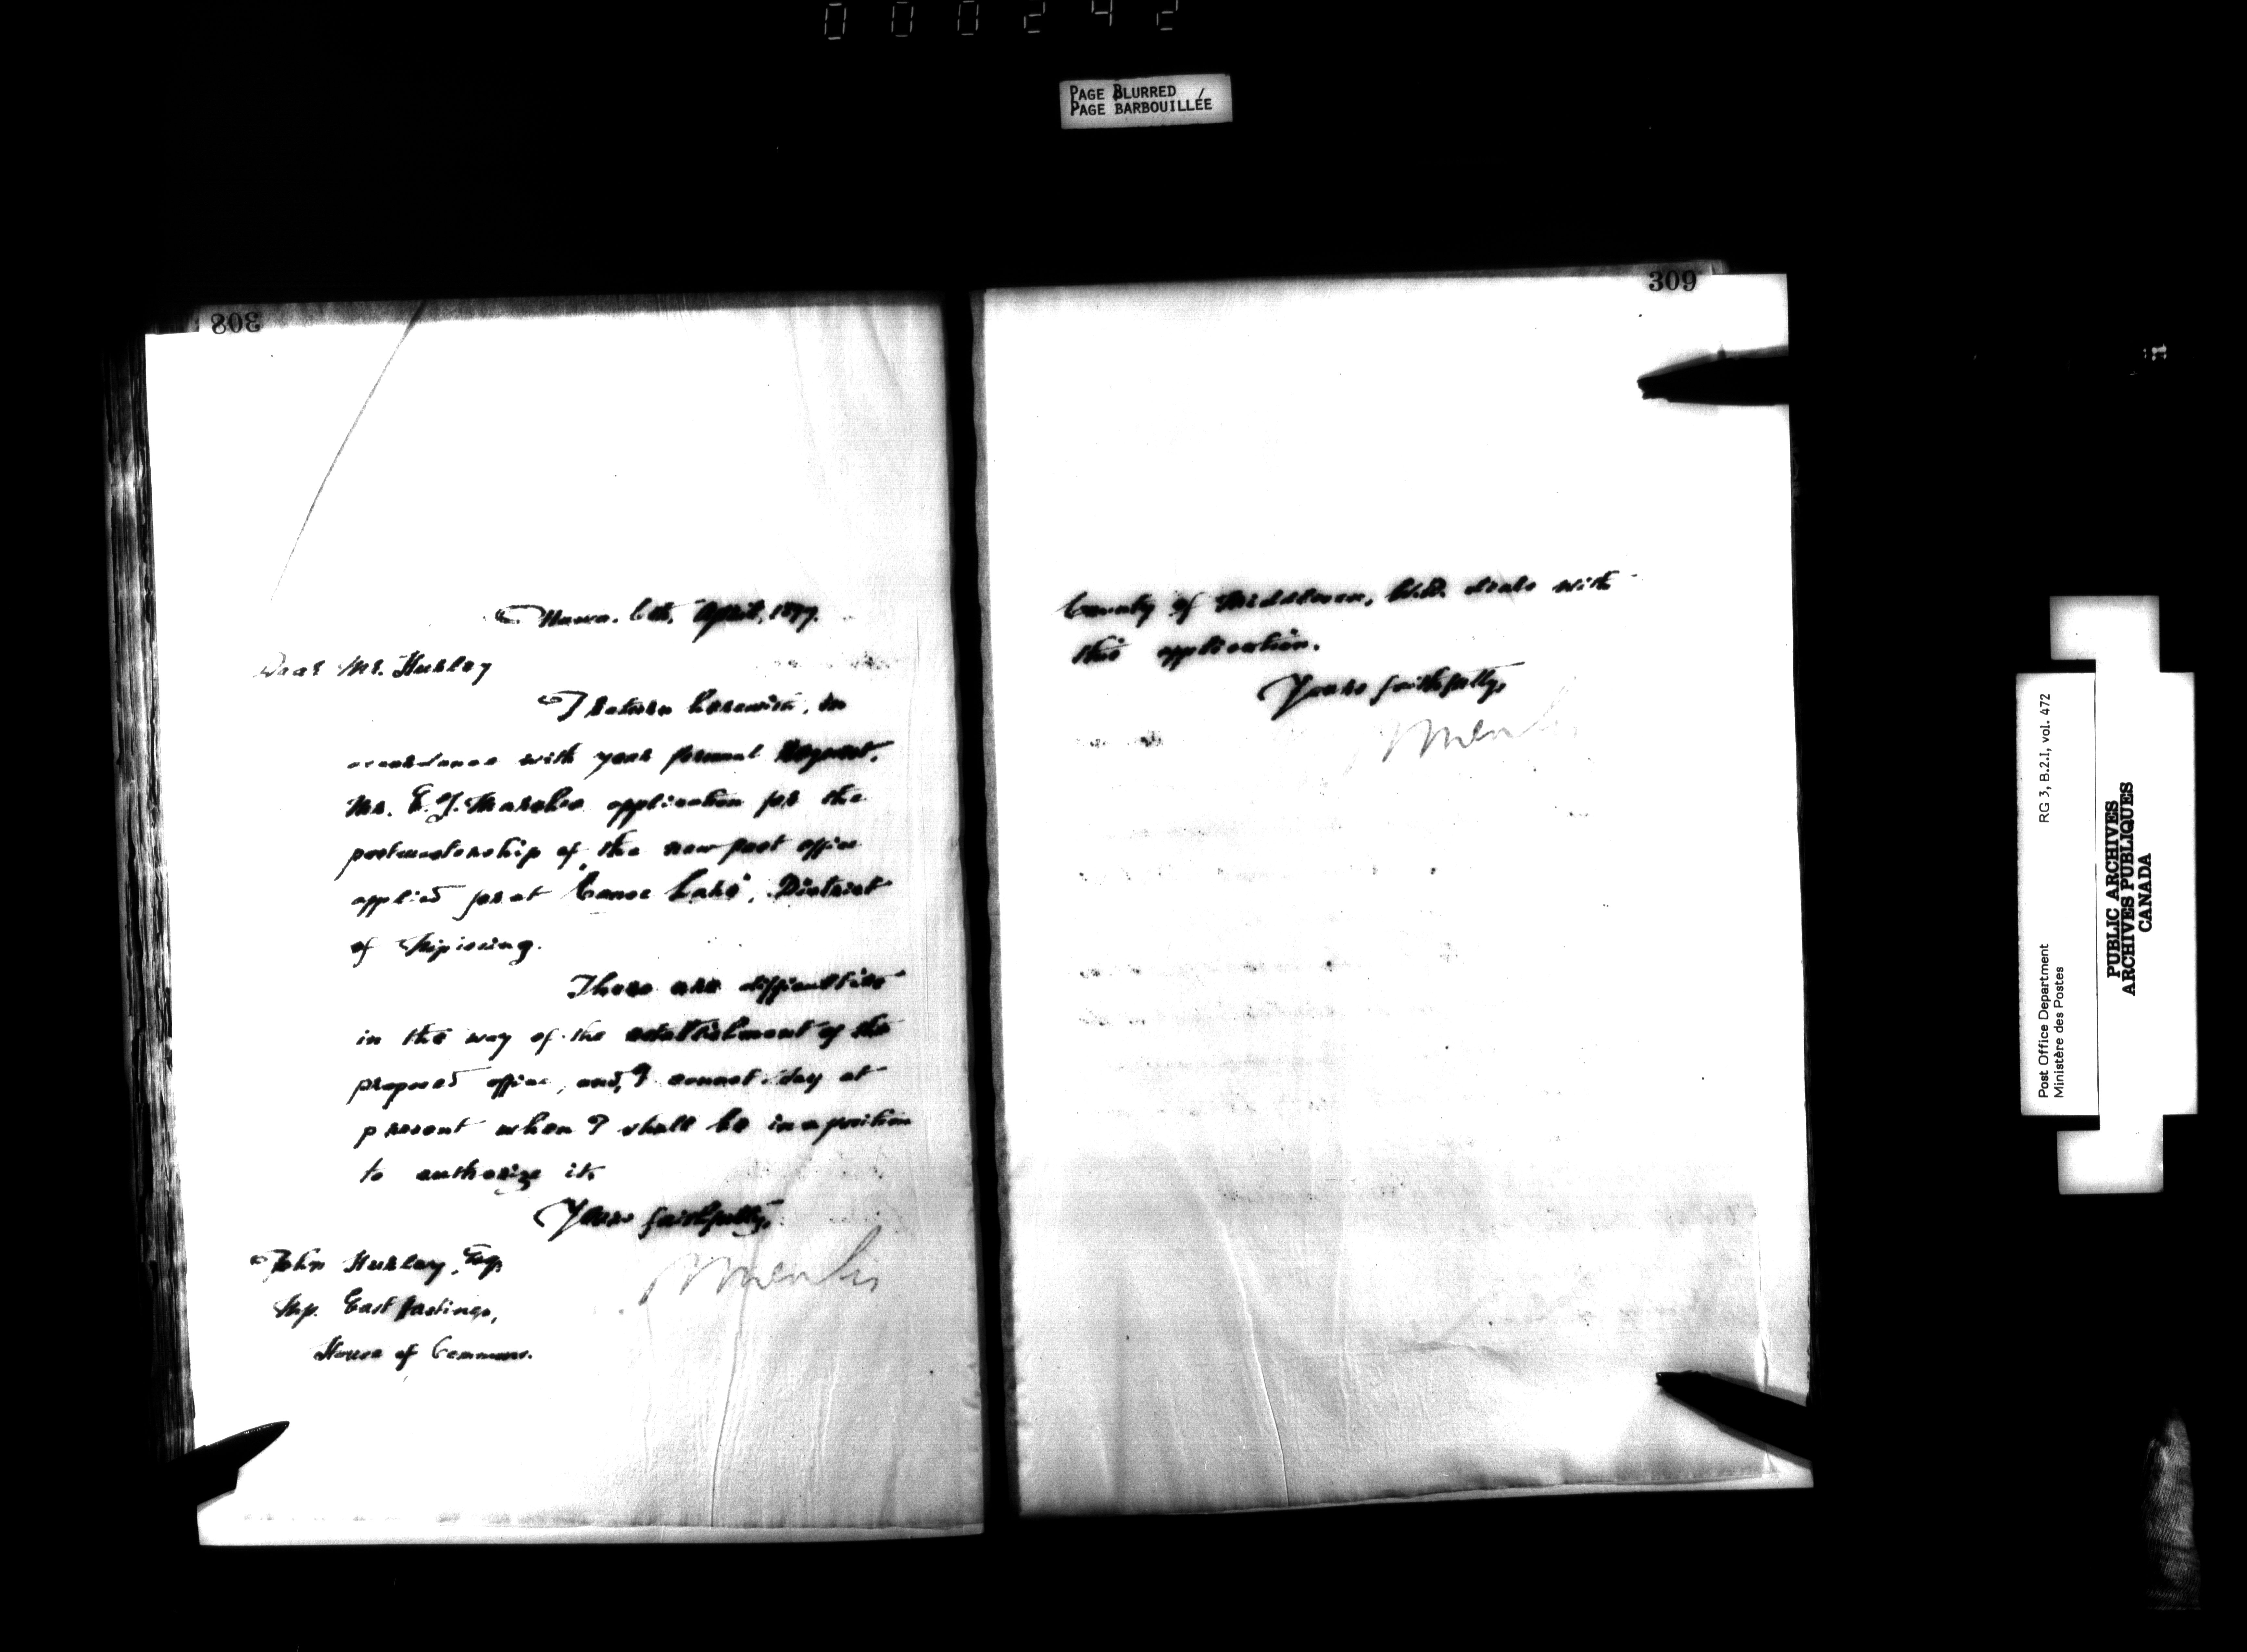 000242
PAGE BLURRED
PAGE BARBOUILLÉE
308
Ottawa. 6th, April, 1897.
Dear Mr. Hurley
I return herewith, in
accordance with your personal request,
Mr. E. J. application for the
postmastership of the new post office
applied for at "Canoe Lake", District
of Nipissing.
There are difficulties
in the way of the establishment of the
proposed office, and, I cannot say at
present when I shall be in a position
to authorize it.
Yours faithfully,
John Hurley, Esq,
M.P. East Hastings,
House of Commons.
309
County of Middlesex, with
this application.
Yours faithfully,
Post Office Department
Ministère des Postes
RG 3, B.2.I, vol. 472
PUBLIC ARCHIVES
ARCHIVES PUBLIQUES
CANADA